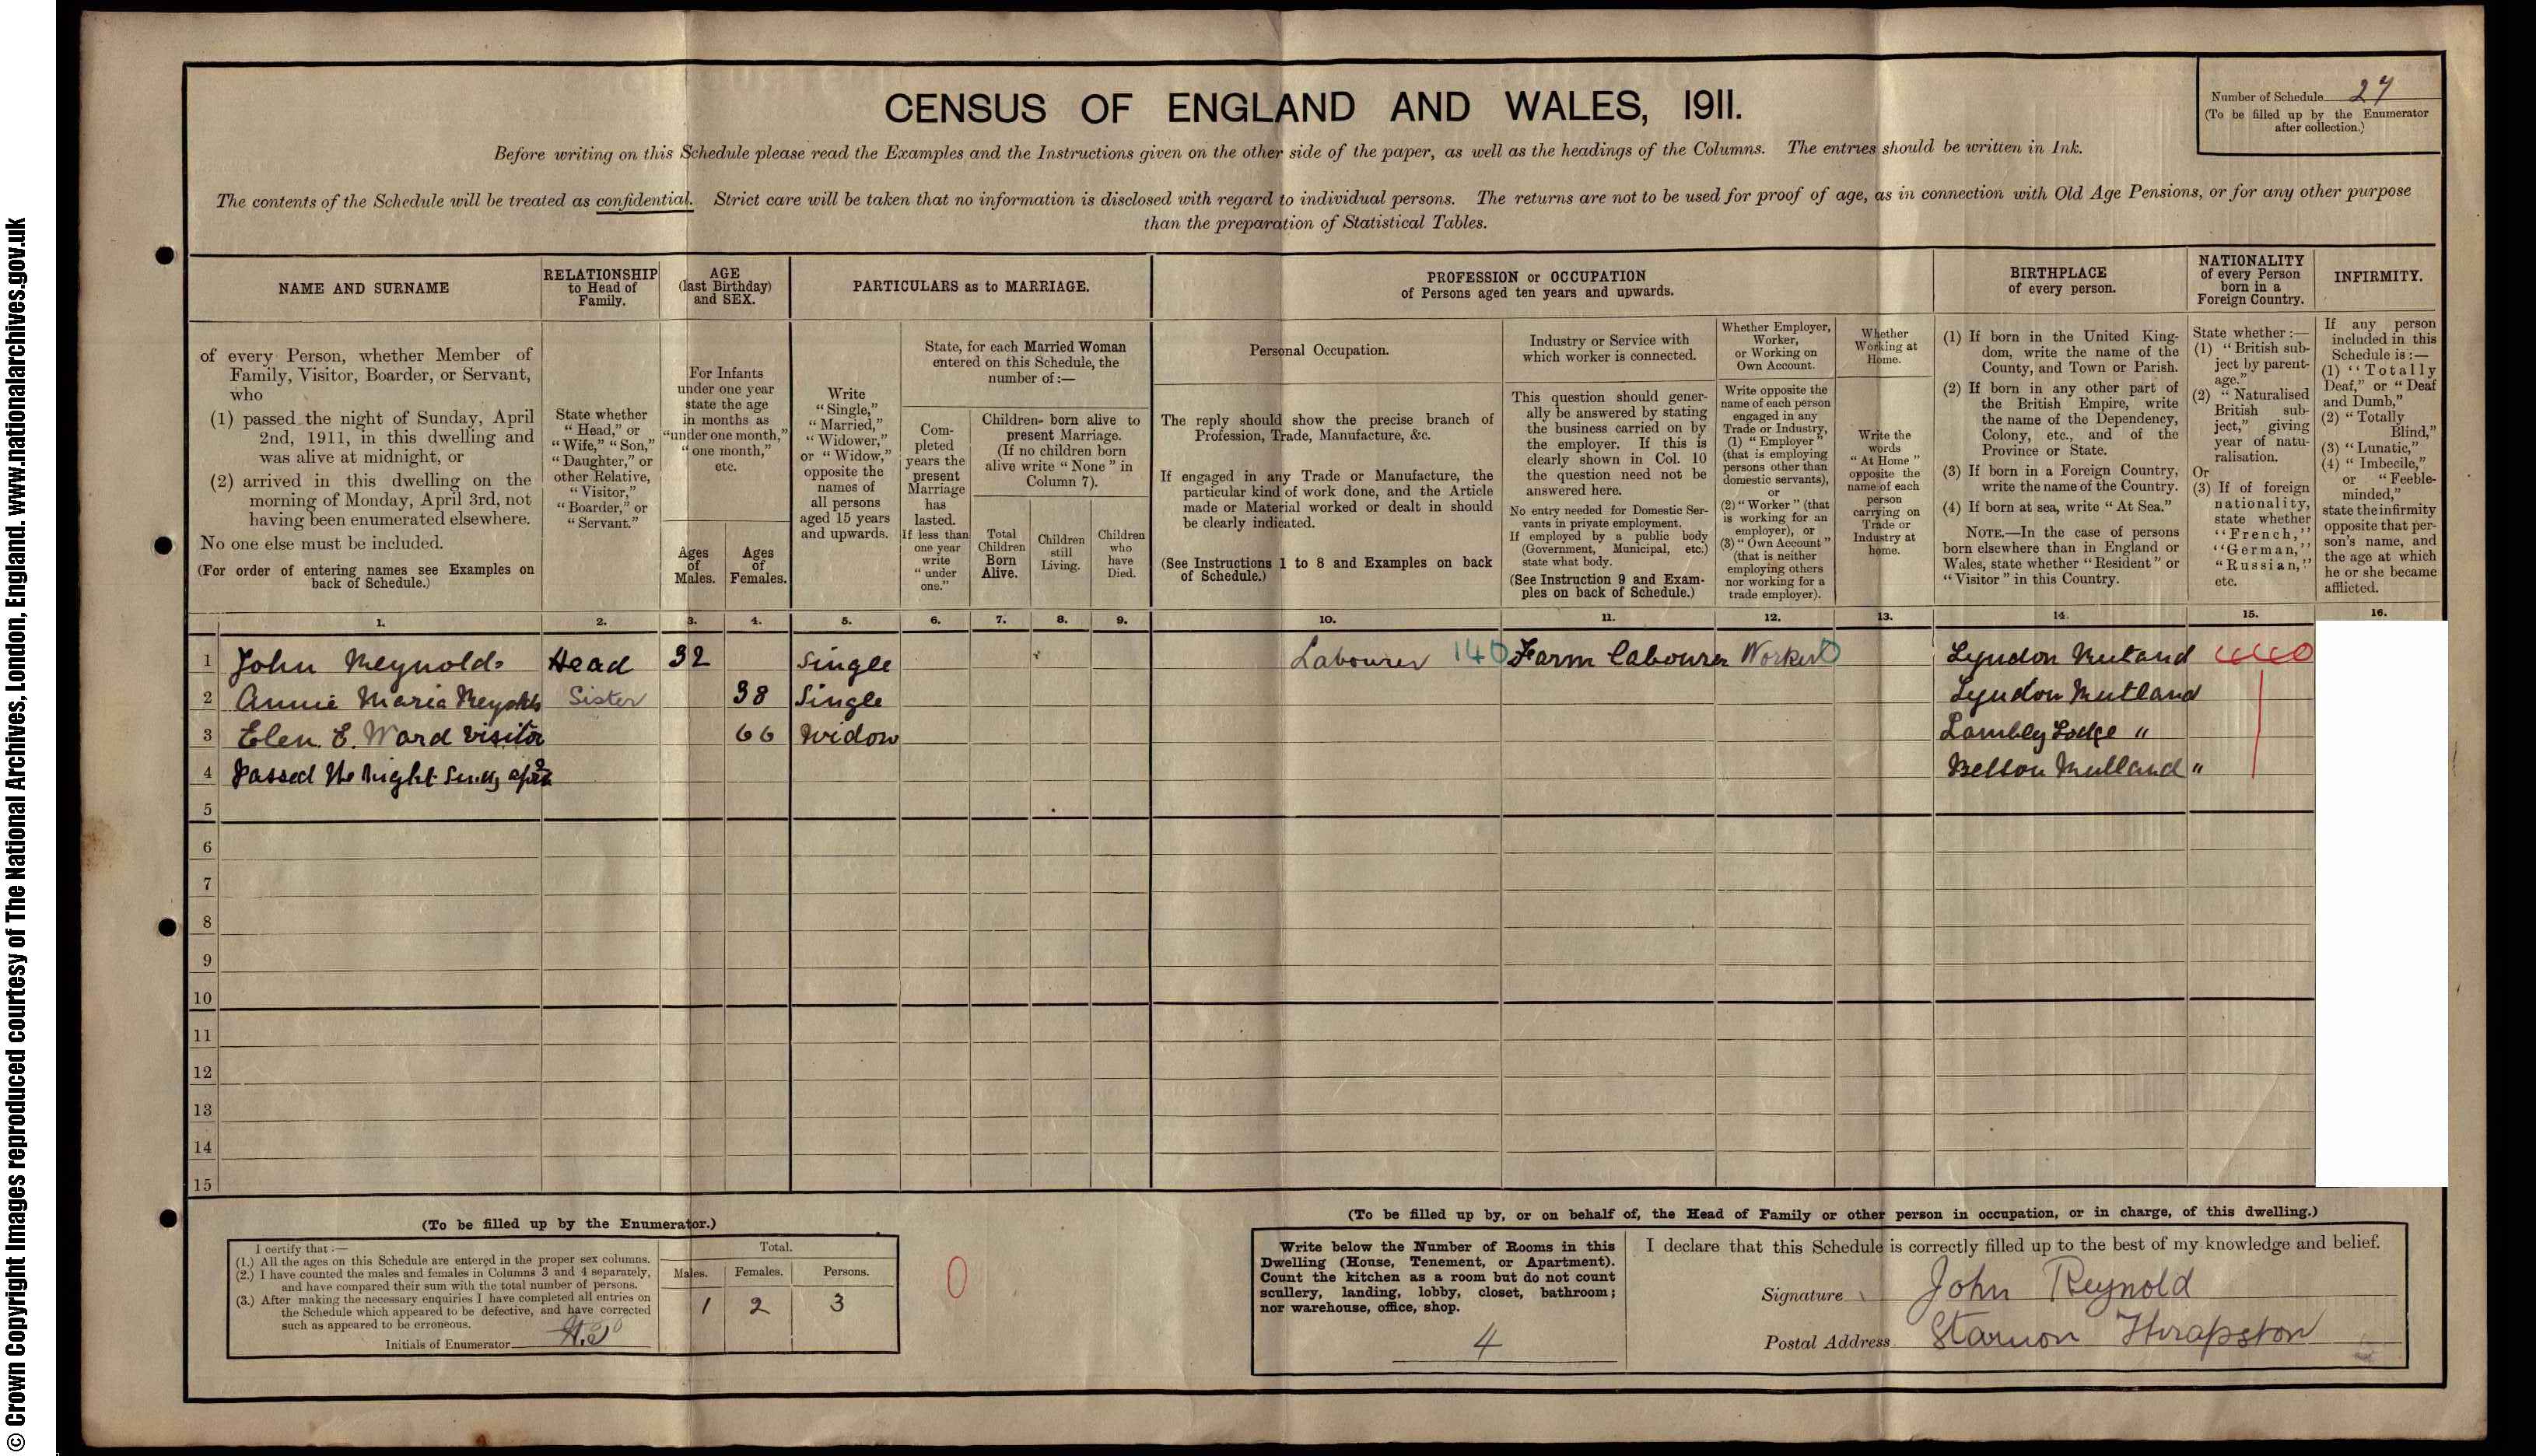 © Crown Copyright Images reproduced courtesy of The National Archives, London, England. www.nationalarchives.gov.uk
CENSUS OF ENGLAND AND WALES, 1911.
Number of Schedule 27
(To be filled up by the Enumerator
after collection.)
Before writing on this Schedule please read the Examples and the Instructions given on the other side of the paper, as well as the headings of the Columns. The entries should be written in Ink.
The contents of the Schedule will be treated as confidential. Strict care will be taken that no information is disclosed with regard to individual persons. The returns are not to be used for proof of age, as in connection with Old Age Pensions, or for any other purpose
than the preparation of Statistical Tables.
NAME AND SURNAME
of every Person, whether Member of
Family, Visitor, Boarder, or Servant,
who
(1) passed the night of Sunday, April
2nd, 1911, in this dwelling and
was alive at midnight, or
(2) arrived in this dwelling on the
morning of Monday, April 3rd, not
having been enumerated elsewhere.
No one else must be included.
(For order of entering names see Examples on
back of Schedule.)
RELATIONSHIP
to Head of
Family.
State whether
"Head," or
"Wife," "Son,"
"Daughter," or
other Relative,
"Visitor,"
"Boarder," or
"Servant."
AGE
(last Birthday)
and SEX.
For Infants
under one year
state the age
in months as
"under one month,"
"one month,"
etc.
Ages
of
Males.
Ages
of
Females.
PARTICULARS as to MARRIAGE.
Write
"Single,"
"Married,"
"Widower,"
or "Widow,"
opposite the
names of
all persons
aged 15 years
and upwards.
State, for each Married Woman
entered on this Schedule, the
number of:—
Com-
pleted
years the
present
Marriage
has
lasted.
If less than
one year
write
"under
one."
Children born alive to
present Marriage.
(If no children born
alive write "None" in
Column 7).
Total
Children
Born
Alive.
Children
still
Living.
Children
who
have
Died.
PROFESSION or OCCUPATION
of Persons aged ten years and upwards.
Personal Occupation.
The reply should show the precise branch of
Profession, Trade, Manufacture, &c.
If engaged in any Trade or Manufacture, the
particular kind of work done, and the Article
made or Material worked or dealt in should
be clearly indicated.
(See Instructions 1 to 8 and Examples on back
of Schedule.)
Industry or Service with
which worker is connected.
This question should gener-
ally be answered by stating
the business carried on by
the employer. If this is
clearly shown in Col. 10
the question need not be
answered here.
No entry needed for Domestic Ser-
vants in private employment.
If employed by a public body
(Government, Municipal, etc.)
state what body.
(See Instruction 9 and Exam-
ples on back of Schedule.)
Whether Employer,
Worker,
or Working on
Own Account.
Write opposite the
name of each person
engaged in any
Trade or Industry,
(1) "Employer"
(that is employing
persons other than
domestic servants),
or
(2) "Worker" (that
is working for an
employer), or
(3) "Own Account"
(that is neither
employing others
nor working for a
trade employer).
Whether
Working at
Home.
Write the
words
"At Home"
opposite the
name of each
person
carrying on
Trade or
Industry at
home.
BIRTHPLACE
of every person.
(1) If born in the United King-
dom, write the name of the
County, and Town or Parish.
(2) If born in any other part of
the British Empire, write
the name of the Dependency,
Colony, etc., and of the
Province or State.
(3) If born in a Foreign Country,
write the name of the Country.
(4) If born at sea, write "At Sea."
NOTE.—In the case of persons
born elsewhere than in England or
Wales, state whether "Resident" or
"Visitor" in this Country.
NATIONALITY
of every Person
born in a
Foreign Country.
State whether:—
(1) "British sub-
ject by parent-
age."
(2) "Naturalised
British sub-
ject," giving
year of natu-
ralisation.
Or
(3) If of foreign
nationality,
state whether
"French,"
"German,"
"Russian,"
etc.
INFIRMITY.
If any person
included in this
Schedule is:—
(1) "Totally
Deaf," or "Deaf
and Dumb,"
(2) "Totally
Blind,"
(3) "Lunatic,"
(4) "Imbecile,"
or "Feeble-
minded,"
state the infirmity
opposite that per-
son's name, and
the age at which
he or she became
afflicted.
1. 2. 3. 4. 5. 6. 7. 8. 9. 10. 11. 12. 13. 14. 15. 16.
1 John Reynolds Head 32 Single Labourer 140 Farm Labourer Worker Lyndon Rutland
2 Annie Maria Reynolds Sister 38 Single Lyndon Rutland
3 Elen E. Ward visitor 66 Widow Lambley Lodge "
4 Passed the night Belton Rutland "
5
6
7
8
9
10
11
12
13
14
15
(To be filled up by the Enumerator.)
I certify that:—
(1.) All the ages on this Schedule are entered in the proper sex columns.
(2.) I have counted the males and females in Columns 3 and 4 separately,
and have compared their sum with the total number of persons.
(3.) After making the necessary enquiries I have completed all entries on
the Schedule which appeared to be defective, and have corrected
such as appeared to be erroneous.
Initials of Enumerator
Total.
Males. Females. Persons.
1 2 3
0
(To be filled up by, or on behalf of, the Head of Family or other person in occupation, or in charge, of this dwelling.)
Write below the Number of Rooms in this
Dwelling (House, Tenement, or Apartment).
Count the kitchen as a room but do not count
scullery, landing, lobby, closet, bathroom;
nor warehouse, office, shop.
4
I declare that this Schedule is correctly filled up to the best of my knowledge and belief.
Signature John Reynold
Postal Address Stanion Thrapston